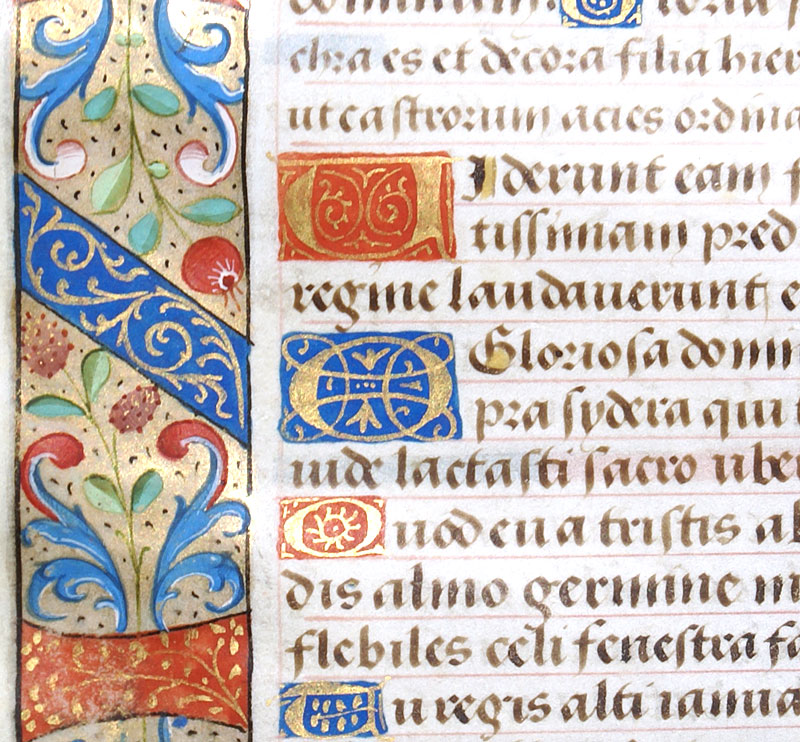 chra es et decora filia hier
ut castrorum acies ordina
Uiderunt eam f
tissimam pred
regine laudaverunt e
O Gloriosa domi
pra sydera qui
uide lactasti sacro uber
Quod eua tristis ab
dis almo germine
flebiles celi fenestra fa
Tu regis alti ianua